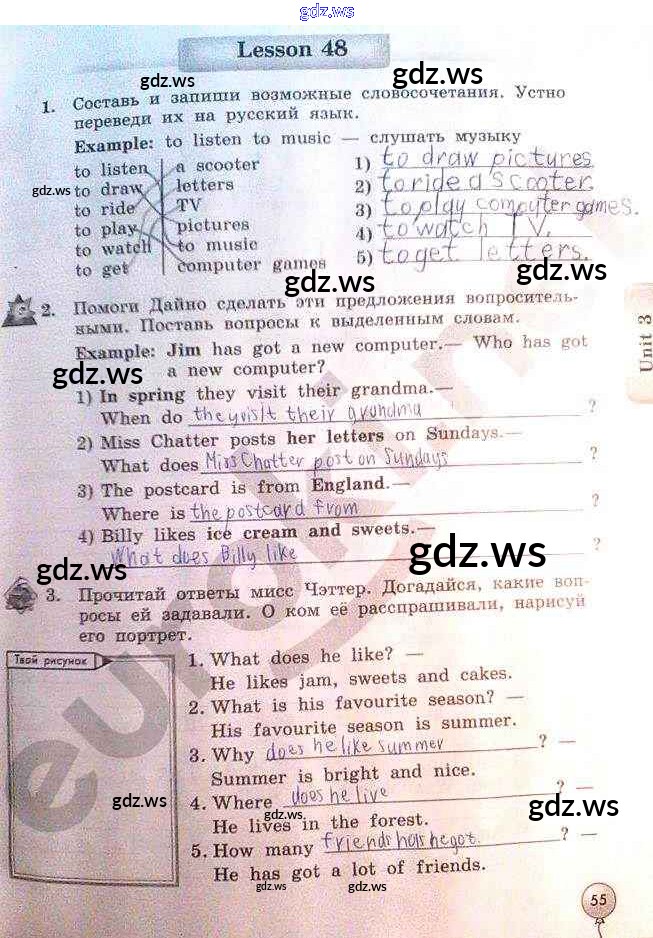 gdz.ws
Lesson 48
gdz.ws
gdz.ws
1. Составь и запиши возможные словосочетания. Устно
переведи их на русский язык.
Example: to listen to music — слушать музыку
to listen a scooter 1) to draw pictures
gdz.ws
to draw letters 2) to ride a scooter.
to ride TV 3) to play computer games.
to play pictures 4) to watch TV.
to watch to music 5) to get letters.
to get computer games
gdz.ws
gdz.ws
2. Помоги Дайно сделать эти предложения вопроситель-
ными. Поставь вопросы к выделенным словам.
Unit 3
Example: Jim has got a new computer.— Who has got
a new computer?
gdz.ws
1) In spring they visit their grandma.—
When do they visit their grundma ?
2) Miss Chatter posts her letters on Sundays.—
What does Miss Chatter post on Sundays ?
3) The postcard is from England.—
Where is the postcard from ?
4) Billy likes ice cream and sweets.—
What does Billy like ?
gdz.ws
gdz.ws
3. Прочитай ответы мисс Чэттер. Догадайся, какие воп-
росы ей задавали. О ком её расспрашивали, нарисуй
его портрет.
Твой рисунок
1. What does he like? —
He likes jam, sweets and cakes.
2. What is his favourite season? —
His favourite season is summer.
3. Why does he like summer ? —
Summer is bright and nice.
4. Where does he live ? —
gdz.ws
gdz.ws
gdz.ws
He lives in the forest.
5. How many friends has he got. ? —
He has got a lot of friends.
gdz.ws
gdz.ws
55
eurokin